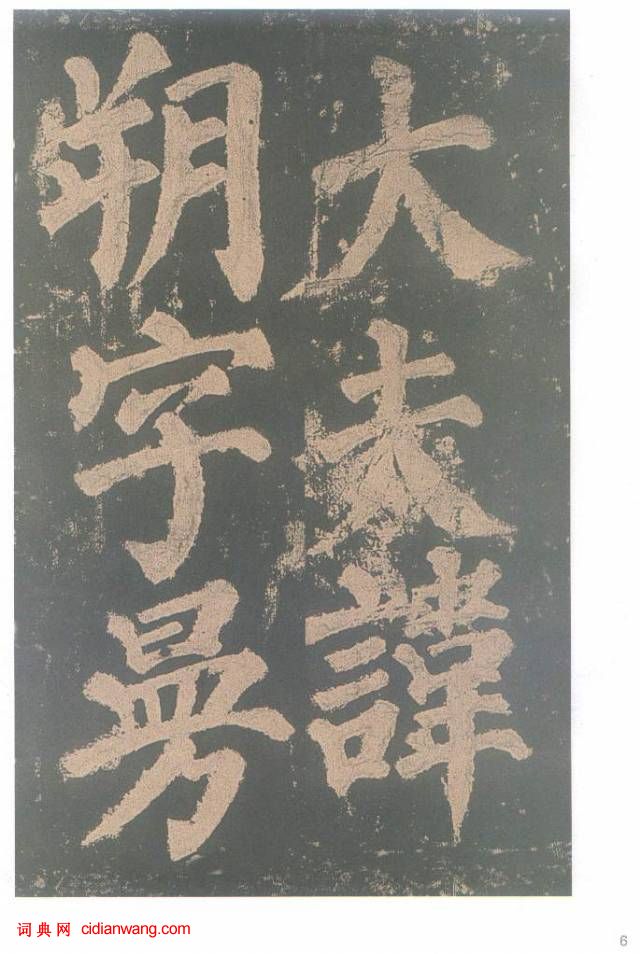 大夫諱
朔字曼
词典网 cidianwang.com
6